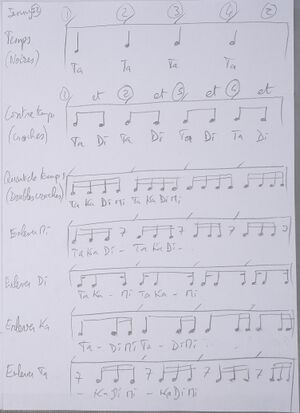 ① ② ③ ④
Temps
(Noires)
Ta Ta Ta Ta
① et ② et ③ et ④ et
Contre temps
(croches)
Ta Di Ta Di Ta Di Ta Di
Quart de temps
(Doubles croches)
Ta Ka Di Mi Ta Ka Di Mi
Enlever Mi
Ta Ka Di - Ta Ka Di -
Enlever Di
Ta Ka - Mi Ta Ka - Mi
Enlever Ka
Ta - Di Mi Ta - Di Mi
Enlever Ta
- Ka Di Mi - Ka Di Mi